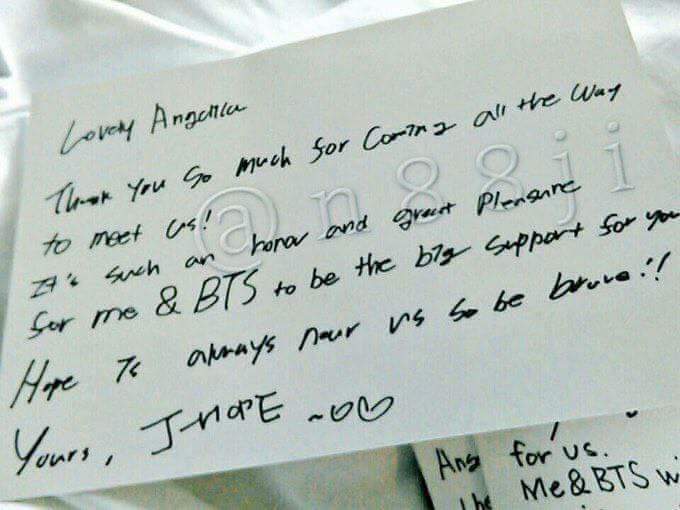 Lovely Angelica
Thank you so much for coming all the way
to meet us!
It's such an honor and great pleasure
for me & BTS to be the big support for you
Hope is always near us so be brave!!
Yours, J-HOPE ~
@n88ji
Ang
for us.
the
Me&BTS w